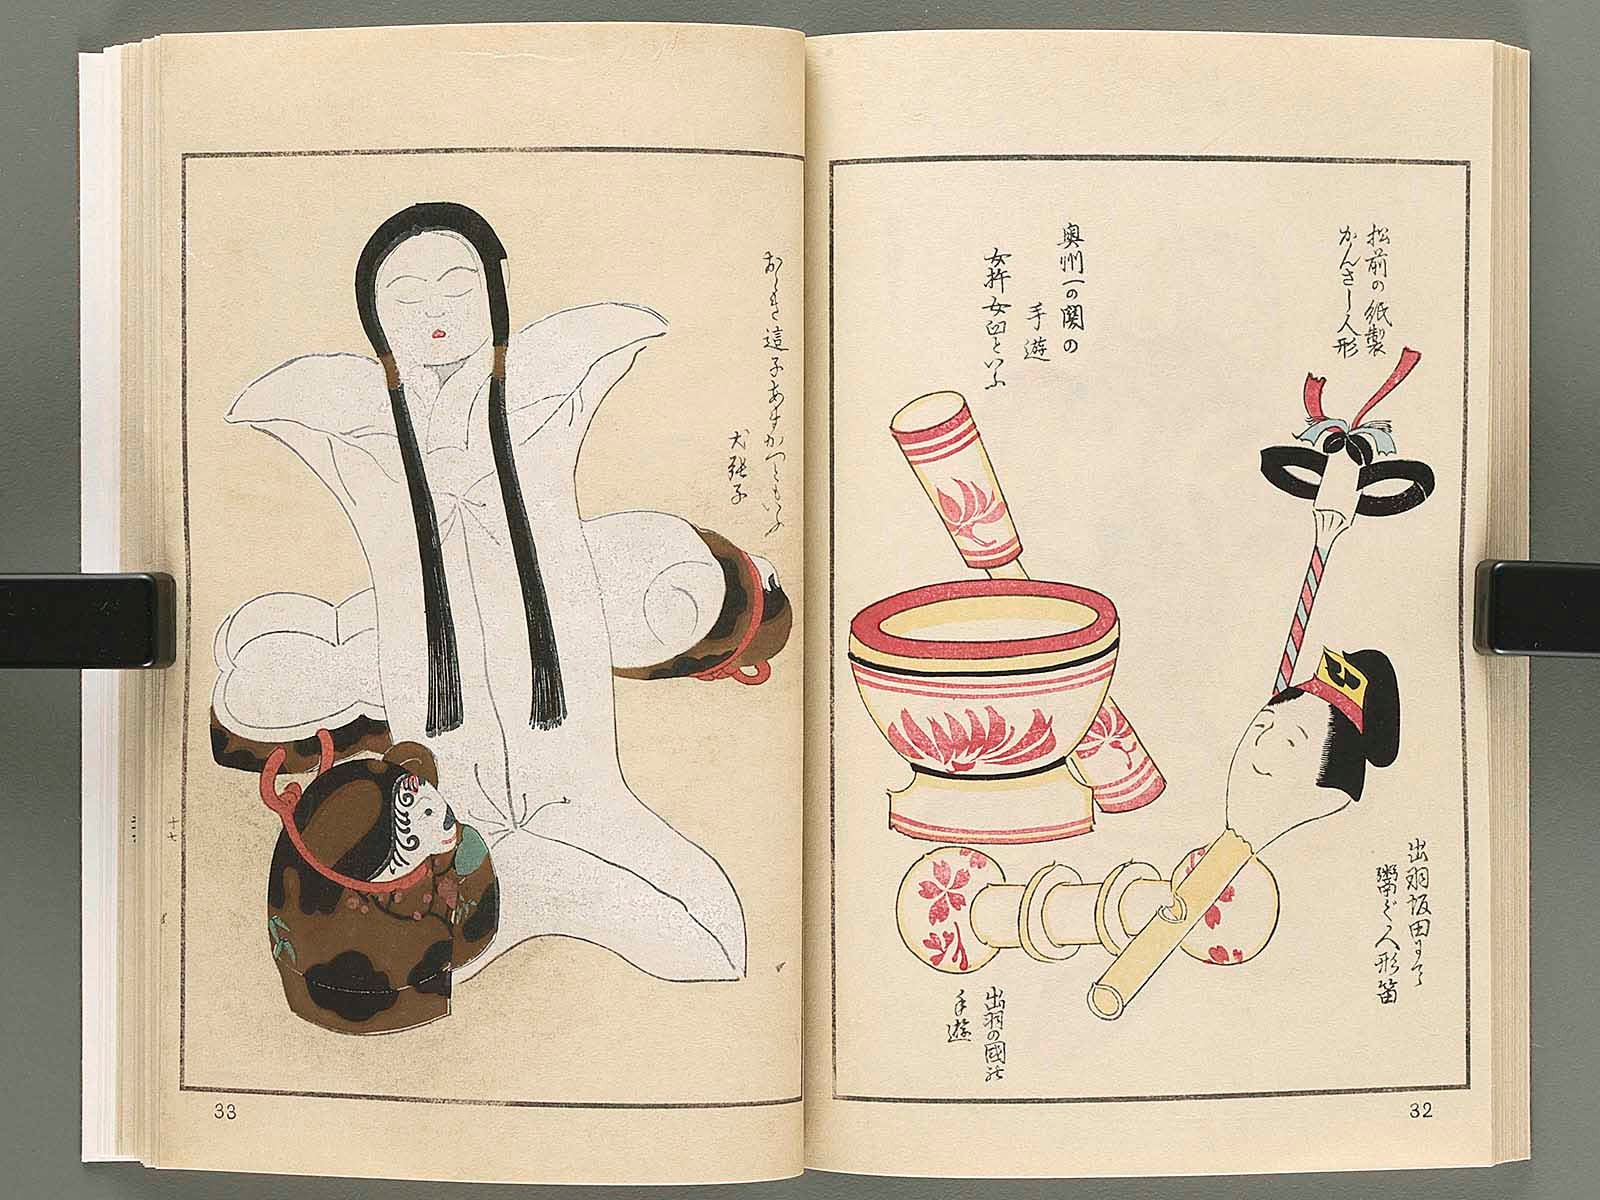 松前の紙製
かんざし人形
奥州一の関の
手遊
女杵女臼といふ
出羽坂田にて
鶯ど人形笛
出羽の國の
手遊
32
這子あまがつともいふ
犬張子
十七
33